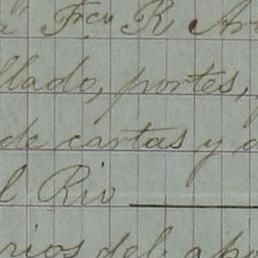 Fco R Ar
llado, portes,
de cartas y d
l Rio
rios del apo